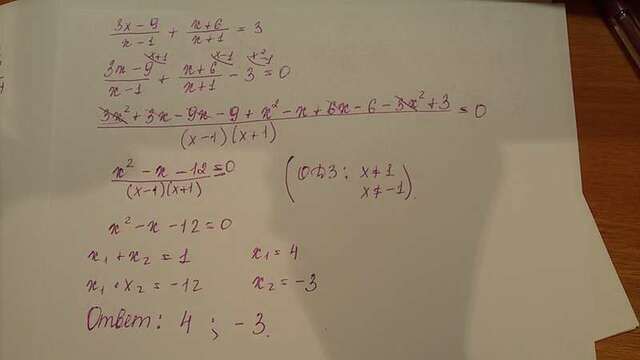 (3x-9)/(x-1) + (x+6)/(x+1) = 3
(3x-9)/(x-1) ^(x+1) + (x+6)/(x+1) ^(x-1) - 3 ^(x²-1) = 0
(3x² + 3x - 9x - 9 + x² - x + 6x - 6 - 3x² + 3)/((x-1)(x+1)) = 0
(x² - x - 12)/((x-1)(x+1)) = 0 (ОДЗ: x≠1
x≠-1).
x² - x - 12 = 0
x₁ + x₂ = 1 x₁ = 4
x₁ • x₂ = -12 x₂ = -3
Ответ: 4 ; -3.